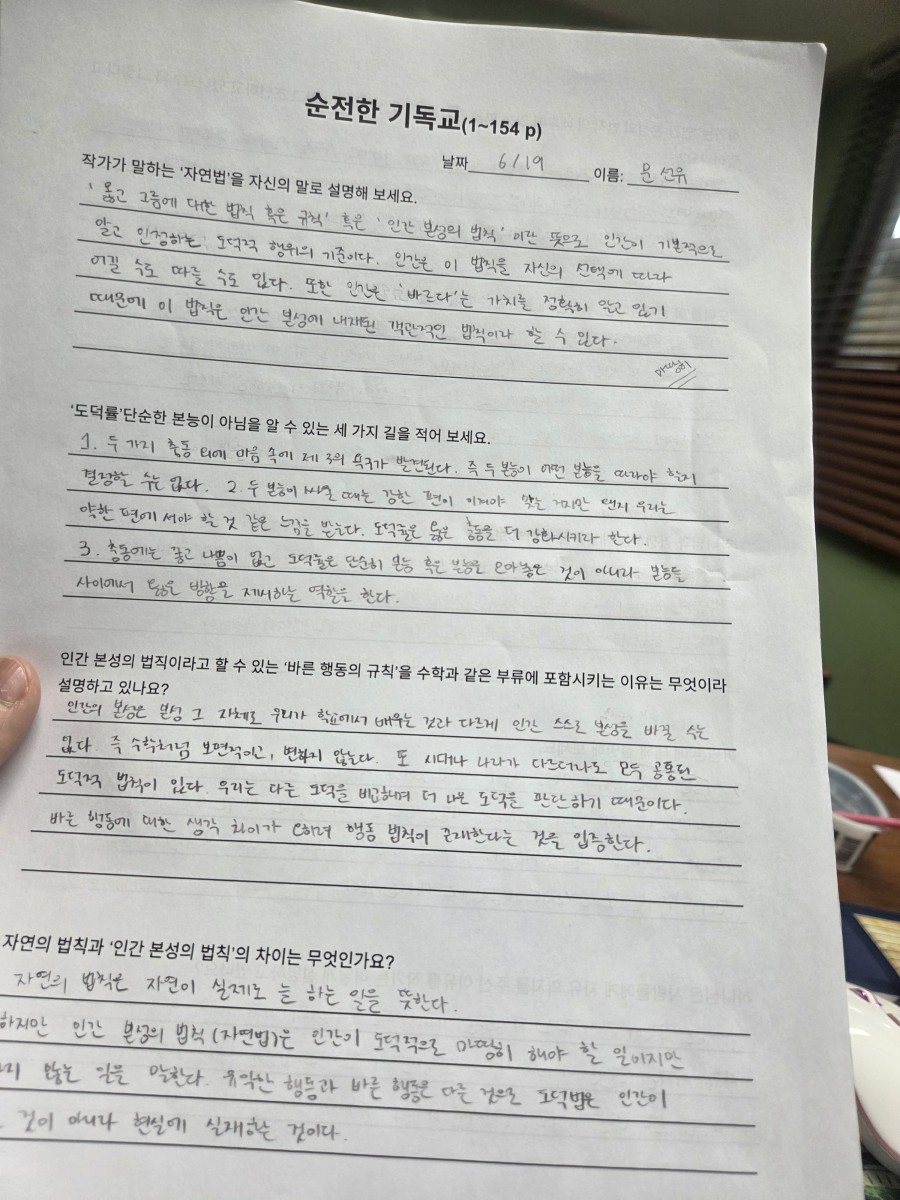 순전한 기독교(1~154 p)
날짜 6/19 이름: 문 선유
작가가 말하는 '자연법'을 자신의 말로 설명해 보세요.
'옳고 그름에 대한 법칙 혹은 규칙' 혹은 '인간 본성의 법칙' 이란 뜻으로 인간이 기본적으로
알고 인정하는 도덕적 행위의 기준이다. 인간은 이 법칙을 자신의 선택에 따라
어길 수도 따를 수도 있다. 또한 인간은 '바르다'는 가치를 정확히 알고 있기
때문에 이 법칙은 인간 본성에 내재된 객관적인 법칙이라 할 수 있다.
마땅히
'도덕률'단순한 본능이 아님을 알 수 있는 세 가지 길을 적어 보세요.
1. 두 가지 충동 외에 마음 속에 제 3의 욕구가 발견된다. 즉 두 본능이 어떤 본능을 따라야 할지
결정할 수는 없다. 2. 두 본능이 싸울 때는 강한 편이 이겨야 맞는 거지만 왠지 우리는
약한 편에 서야 할 것 같은 느낌을 받는다. 도덕률은 옳은 충동을 더 강화시키라 한다.
3. 충동에는 좋고 나쁨이 없고 도덕률은 단순히 본능 혹은 본능을 모아놓은 것이 아니라 본능들
사이에서 옳은 방향을 제시하는 역할을 한다.
인간 본성의 법직이라고 할 수 있는 '바른 행동의 규칙'을 수학과 같은 부류에 포함시키는 이유는 무엇이라
설명하고 있나요?
인간의 본성은 본성 그 자체로 우리가 학교에서 배우는 것과 다르게 인간 스스로 본성을 바꿀 수는
없다. 즉 수학처럼 보편적이고, 변하지 않는다. 또 시대나 나라가 다르더라도 모두 공통된
도덕적 법칙이 있다. 우리는 다른 도덕을 비교하며 더 나은 도덕을 판단하기 때문이다.
바른 행동에 대한 생각 차이가 오히려 행동 법칙이 존재한다는 것을 입증한다.
자연의 법칙과 '인간 본성의 법칙'의 차이는 무엇인가요?
자연의 법칙은 자연이 실제로 늘 하는 일을 뜻한다.
하지만 인간 본성의 법칙(자연법)은 인간이 도덕적으로 마땅히 해야 할 일이지만
않는 일을 말한다. 유익한 행동과 바른 행동은 다른 것으로 도덕법은 인간이
것이 아니라 현실에 실재하는 것이다.